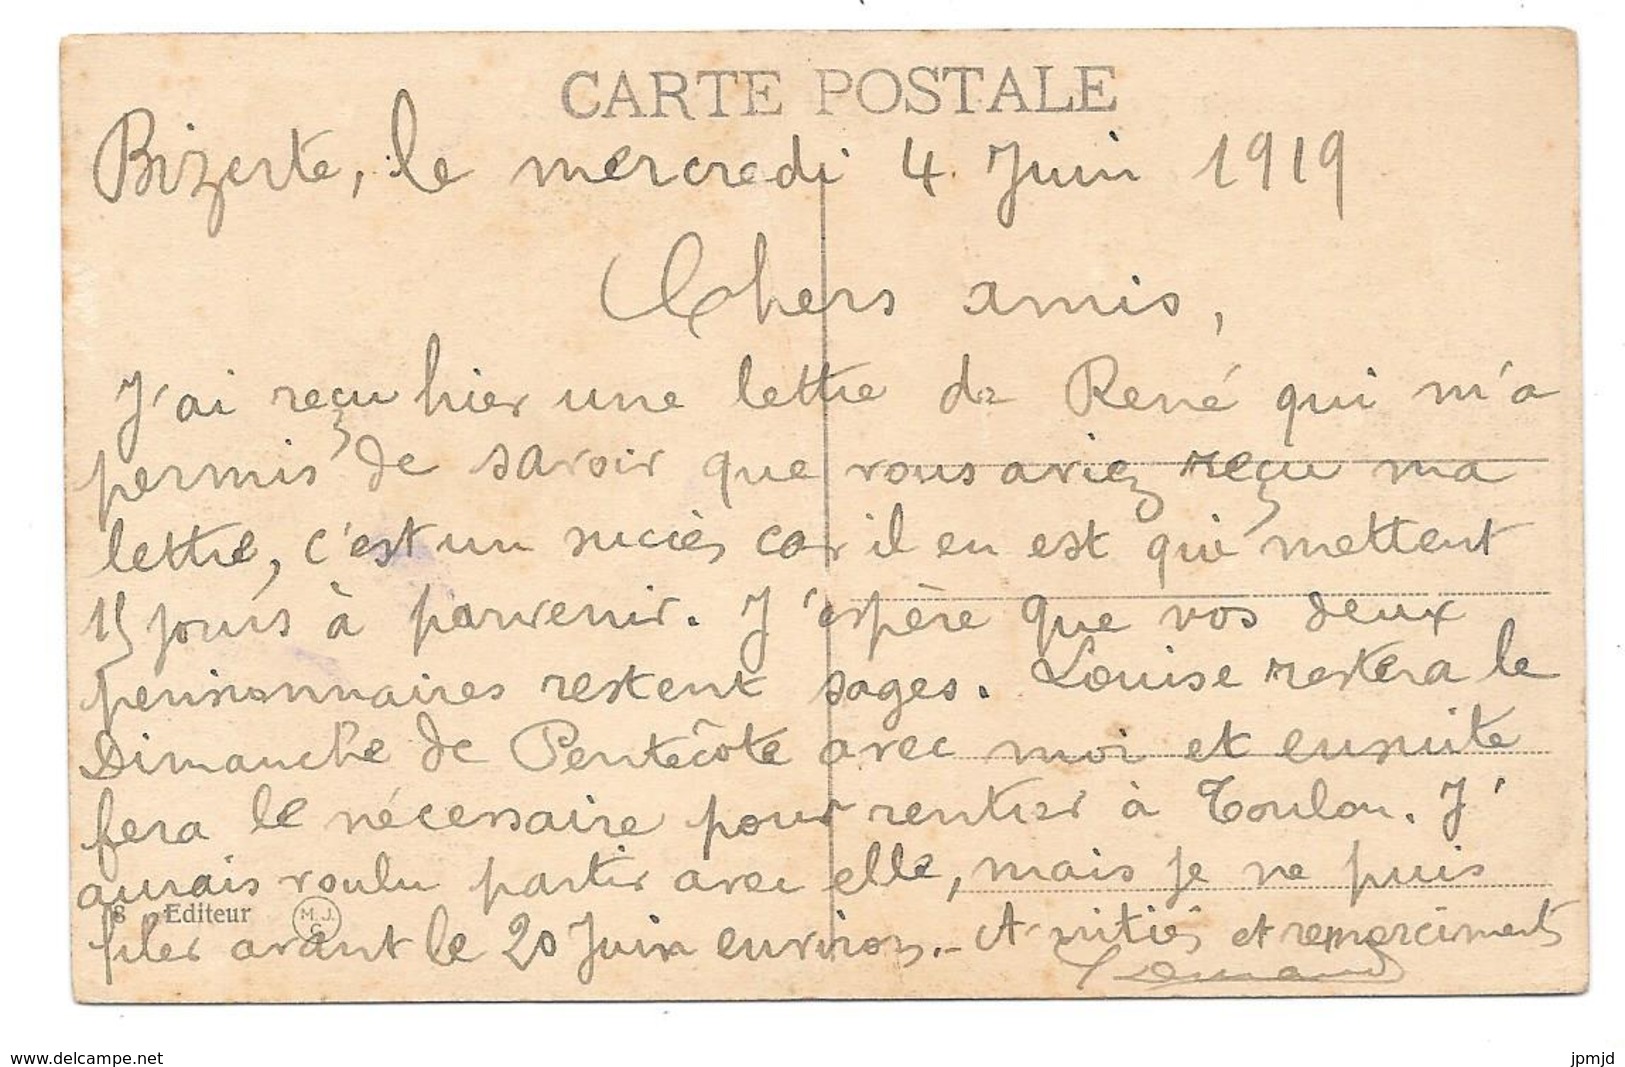 CARTE POSTALE
Bizerte, le mercredi 4 Juin 1919
Chers amis,
J'ai reçu hier une lettre de René qui m'a
permis de savoir que vous aviez reçu ma
lettre, c'est un succès car il en est qui mettent
15 jours à parvenir. J'espère que vos deux
pensionnaires restent sages. Louise restera le
Dimanche de Pentecôte avec moi et ensuite
fera le nécessaire pour rentrer à Toulon. J'
aurais voulu partir avec elle, mais je ne puis
8 Editeur M. J. C
filer avant le 20 Juin environ. - Amitiés et remerciements
www.delcampe.net
jpmjd